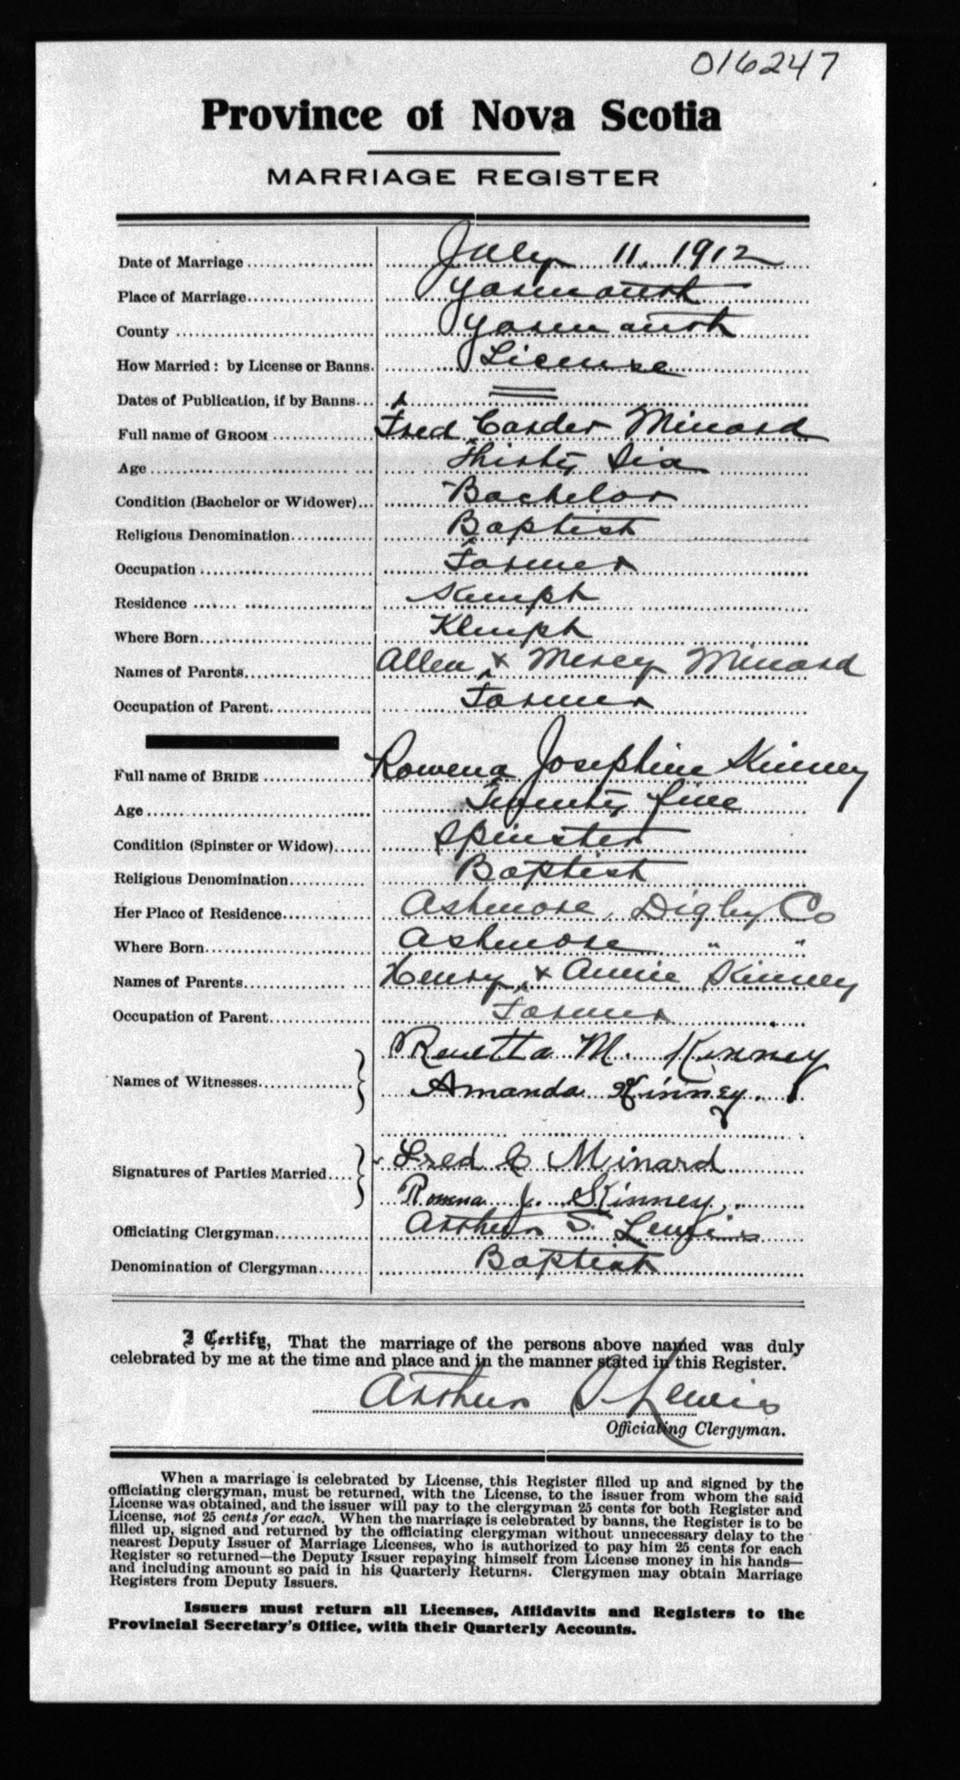 016247
Province of Nova Scotia
MARRIAGE REGISTER
Date of Marriage July 11. 1912
Place of Marriage Yarmouth
County Yarmouth
How Married: by License or Banns. License
Dates of Publication, if by Banns
Full name of GROOM Fred Carder Minard
Age Thirty Six
Condition (Bachelor or Widower) Bachelor
Religious Denomination Baptist
Occupation Farmer
Residence Kempt
Where Born Kempt
Names of Parents Allen & Mercy Minard
Occupation of Parent Farmer
Full name of BRIDE Rowena Josephine Kinney
Age Twenty five
Condition (Spinster or Widow) Spinster
Religious Denomination Baptist
Her Place of Residence Ashmore, Digby Co
Where Born Ashmore " "
Names of Parents Henry & Annie Kinney
Occupation of Parent Farmer
Renetta M. Kinney
Names of Witnesses Amanda Kinney.
Signatures of Parties Married Fred C Minard
Rowena J. Kinney.
Officiating Clergyman Arthur S. Lewis
Denomination of Clergyman Baptist
I Certify, That the marriage of the persons above named was duly
celebrated by me at the time and place and in the manner stated in this Register.
Arthur S. Lewis
Officiating Clergyman.
When a marriage is celebrated by License, this Register filled up and signed by the
officiating clergyman, must be returned, with the License, to the issuer from whom the said
License was obtained, and the issuer will pay to the clergyman 25 cents for both Register and
License, not 25 cents for each. When the marriage is celebrated by banns, the Register is to be
filled up, signed and returned by the officiating clergyman without unnecessary delay to the
nearest Deputy Issuer of Marriage Licenses, who is authorized to pay him 25 cents for each
Register so returned—the Deputy Issuer repaying himself from License money in his hands—
and including amount so paid in his Quarterly Returns. Clergymen may obtain Marriage
Registers from Deputy Issuers.
Issuers must return all Licenses, Affidavits and Registers to the
Provincial Secretary's Office, with their Quarterly Accounts.